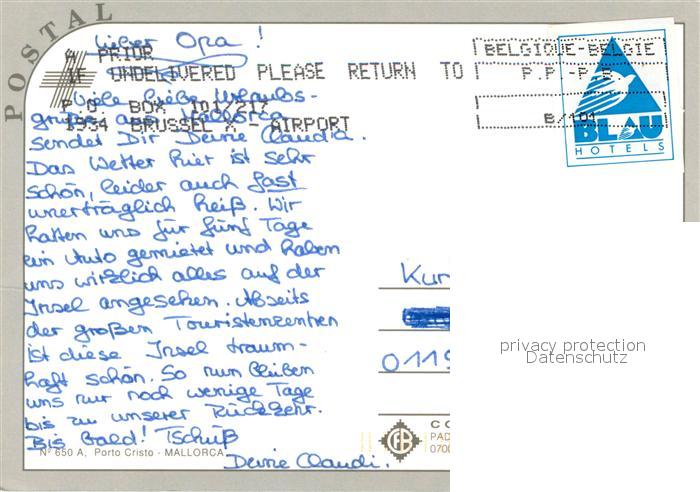 POSTAL
Lieber Opa!
A PRIOR
IF UNDELIVERED PLEASE RETURN TO
P O BOX 101/217
1934 BRUSSEL X AIRPORT
BELGIQUE-BELGIE
P.P.-P.B.
B/101
BLAU
HOTELS
Viele liebe Urlaubs-
grüße aus Mallorca
sendet Dir Deine Claudia.
Das Wetter hier ist sehr
schön, leider auch fast
unerträglich heiß. Wir
hatten uns für fünf Tage
ein Auto gemietet und haben
uns wirklich alles auf der
Insel angesehen. Abseits
der großen Touristenzentren
ist diese Insel traum-
haft schön. So nun bleiben
uns nur noch wenige Tage
bis zu unserer Rückkehr.
Bis bald! Tschüß
Deine Claudi.
Nº 650 A, Porto Cristo - MALLORCA
Kur
0119
CO
PAD
0700
privacy protection
Datenschutz